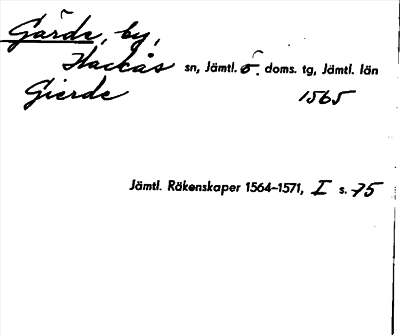 Gärde, by,
Hackås sn, Jämtl. ö. doms. tg, Jämtl. län
Gierde 1565
Jämtl. Räkenskaper 1564–1571, I s. 75